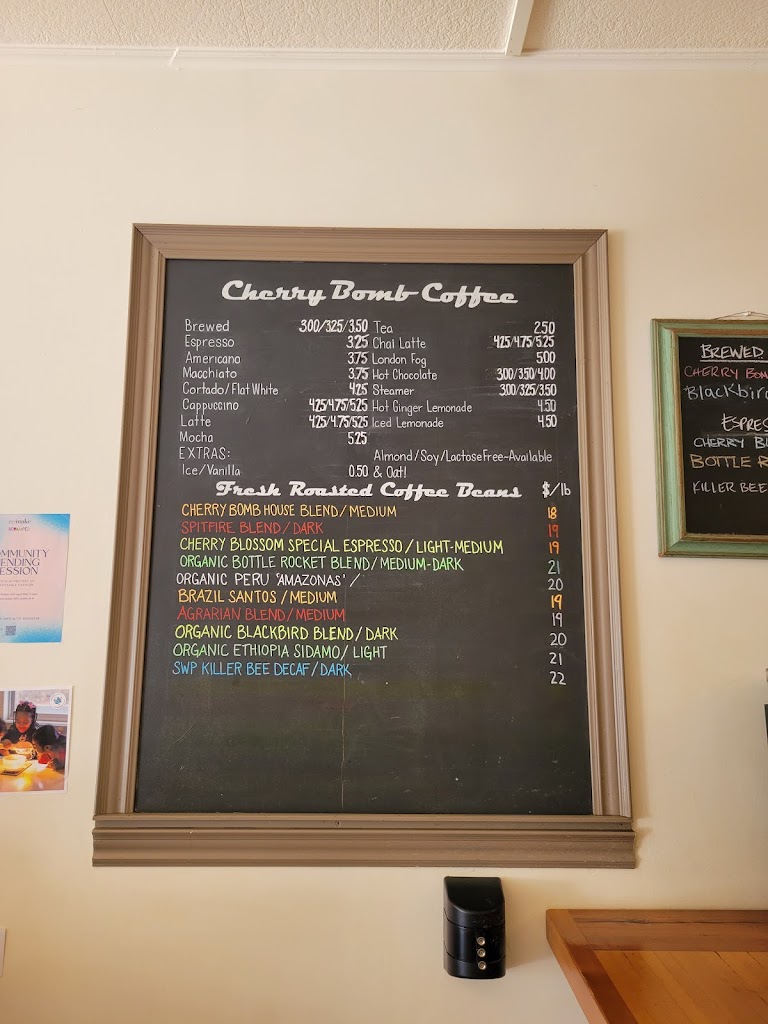 Cherry Bomb Coffee
Brewed 3.00/3.25/3.50
Espresso 3.25
Americano 3.75
Macchiato 3.75
Cortado/Flat White 4.25
Cappuccino 4.25/4.75/5.25
Latte 4.25/4.75/5.25
Mocha 5.25
EXTRAS:
Ice/Vanilla 0.50
Tea 2.50
Chai Latte 4.25/4.75/5.25
London Fog 5.00
Hot Chocolate 3.00/3.50/4.00
Steamer 3.00/3.25/3.50
Hot Ginger Lemonade 4.50
Iced Lemonade 4.50
Almond/Soy/Lactose Free-Available
& Oat!
Fresh Roasted Coffee Beans $/lb
CHERRY BOMB HOUSE BLEND/MEDIUM 18
SPITFIRE BLEND/DARK 19
CHERRY BLOSSOM SPECIAL ESPRESSO/LIGHT-MEDIUM 19
ORGANIC BOTTLE ROCKET BLEND/MEDIUM-DARK 21
ORGANIC PERU 'AMAZONAS' / 20
BRAZIL SANTOS/MEDIUM 19
AGRARIAN BLEND/MEDIUM 19
ORGANIC BLACKBIRD BLEND/DARK 20
ORGANIC ETHIOPIA SIDAMO/LIGHT 21
SWP KILLER BEE DECAF/DARK 22
BREWED
CHERRY BOM
Blackbir
ESPRES
CHERRY BL
BOTTLE R
KILLER BEE
OMMUNITY
ENDING
ESSION